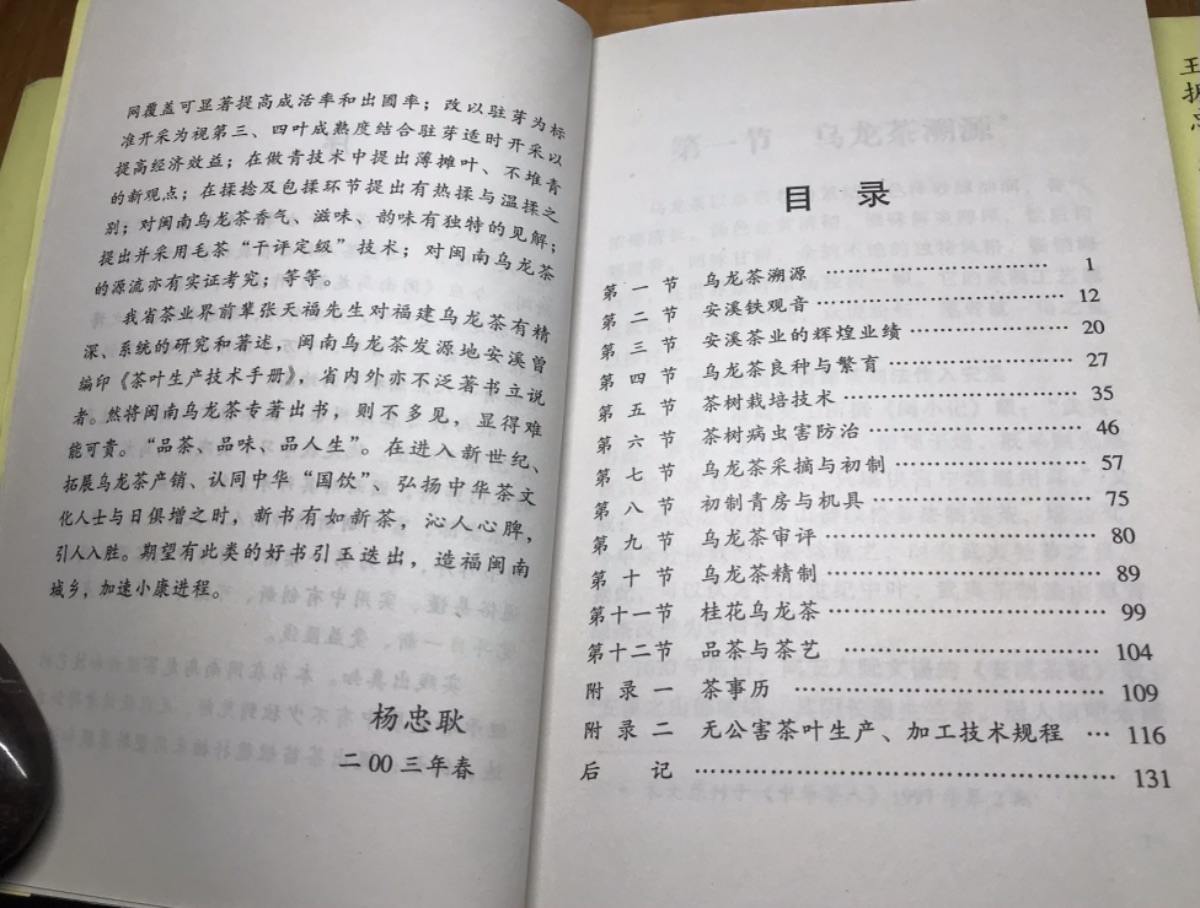 网覆盖可显著提高成活率和出圃率；改以驻芽为标
准开采为视第三、四叶成熟度结合驻芽适时开采以
提高经济效益；在做青技术中提出薄摊叶、不堆青
的新观点；在揉捻及包揉环节提出有热揉与温揉之
别；对闽南乌龙茶香气、滋味、韵味有独特的见解；
提出并采用毛茶“干评定级”技术；对闽南乌龙茶
的源流亦有实证考究；等等。
我省茶业界前辈张天福先生对福建乌龙茶有精
深、系统的研究和著述，闽南乌龙茶发源地安溪曾
编印《茶叶生产技术手册》，省内外亦不泛著书立说
者。然将闽南乌龙茶专著出书，则不多见，显得难
能可贵。“品茶、品味、品人生”。在进入新世纪、
拓展乌龙茶产销、认同中华“国饮”、弘扬中华茶文
化人士与日俱增之时，新书有如新茶，沁人心脾，
引人入胜。期望有此类的好书引玉迭出，造福闽南
城乡，加速小康进程。
杨忠耿
二00三年春
目 录
第一节 乌龙茶溯源 …………………………… 1
第二节 安溪铁观音 …………………………… 12
第三节 安溪茶业的辉煌业绩 ………………… 20
第四节 乌龙茶良种与繁育 …………………… 27
第五节 茶树栽培技术 ………………………… 35
第六节 茶树病虫害防治 ……………………… 46
第七节 乌龙茶采摘与初制 …………………… 57
第八节 初制青房与机具 ……………………… 75
第九节 乌龙茶审评 …………………………… 80
第十节 乌龙茶精制 …………………………… 89
第十一节 桂花乌龙茶 ………………………… 99
第十二节 品茶与茶艺 ………………………… 104
附录一 茶事历 ………………………………… 109
附录二 无公害茶叶生产、加工技术规程 … 116
后 记 …………………………………………… 131